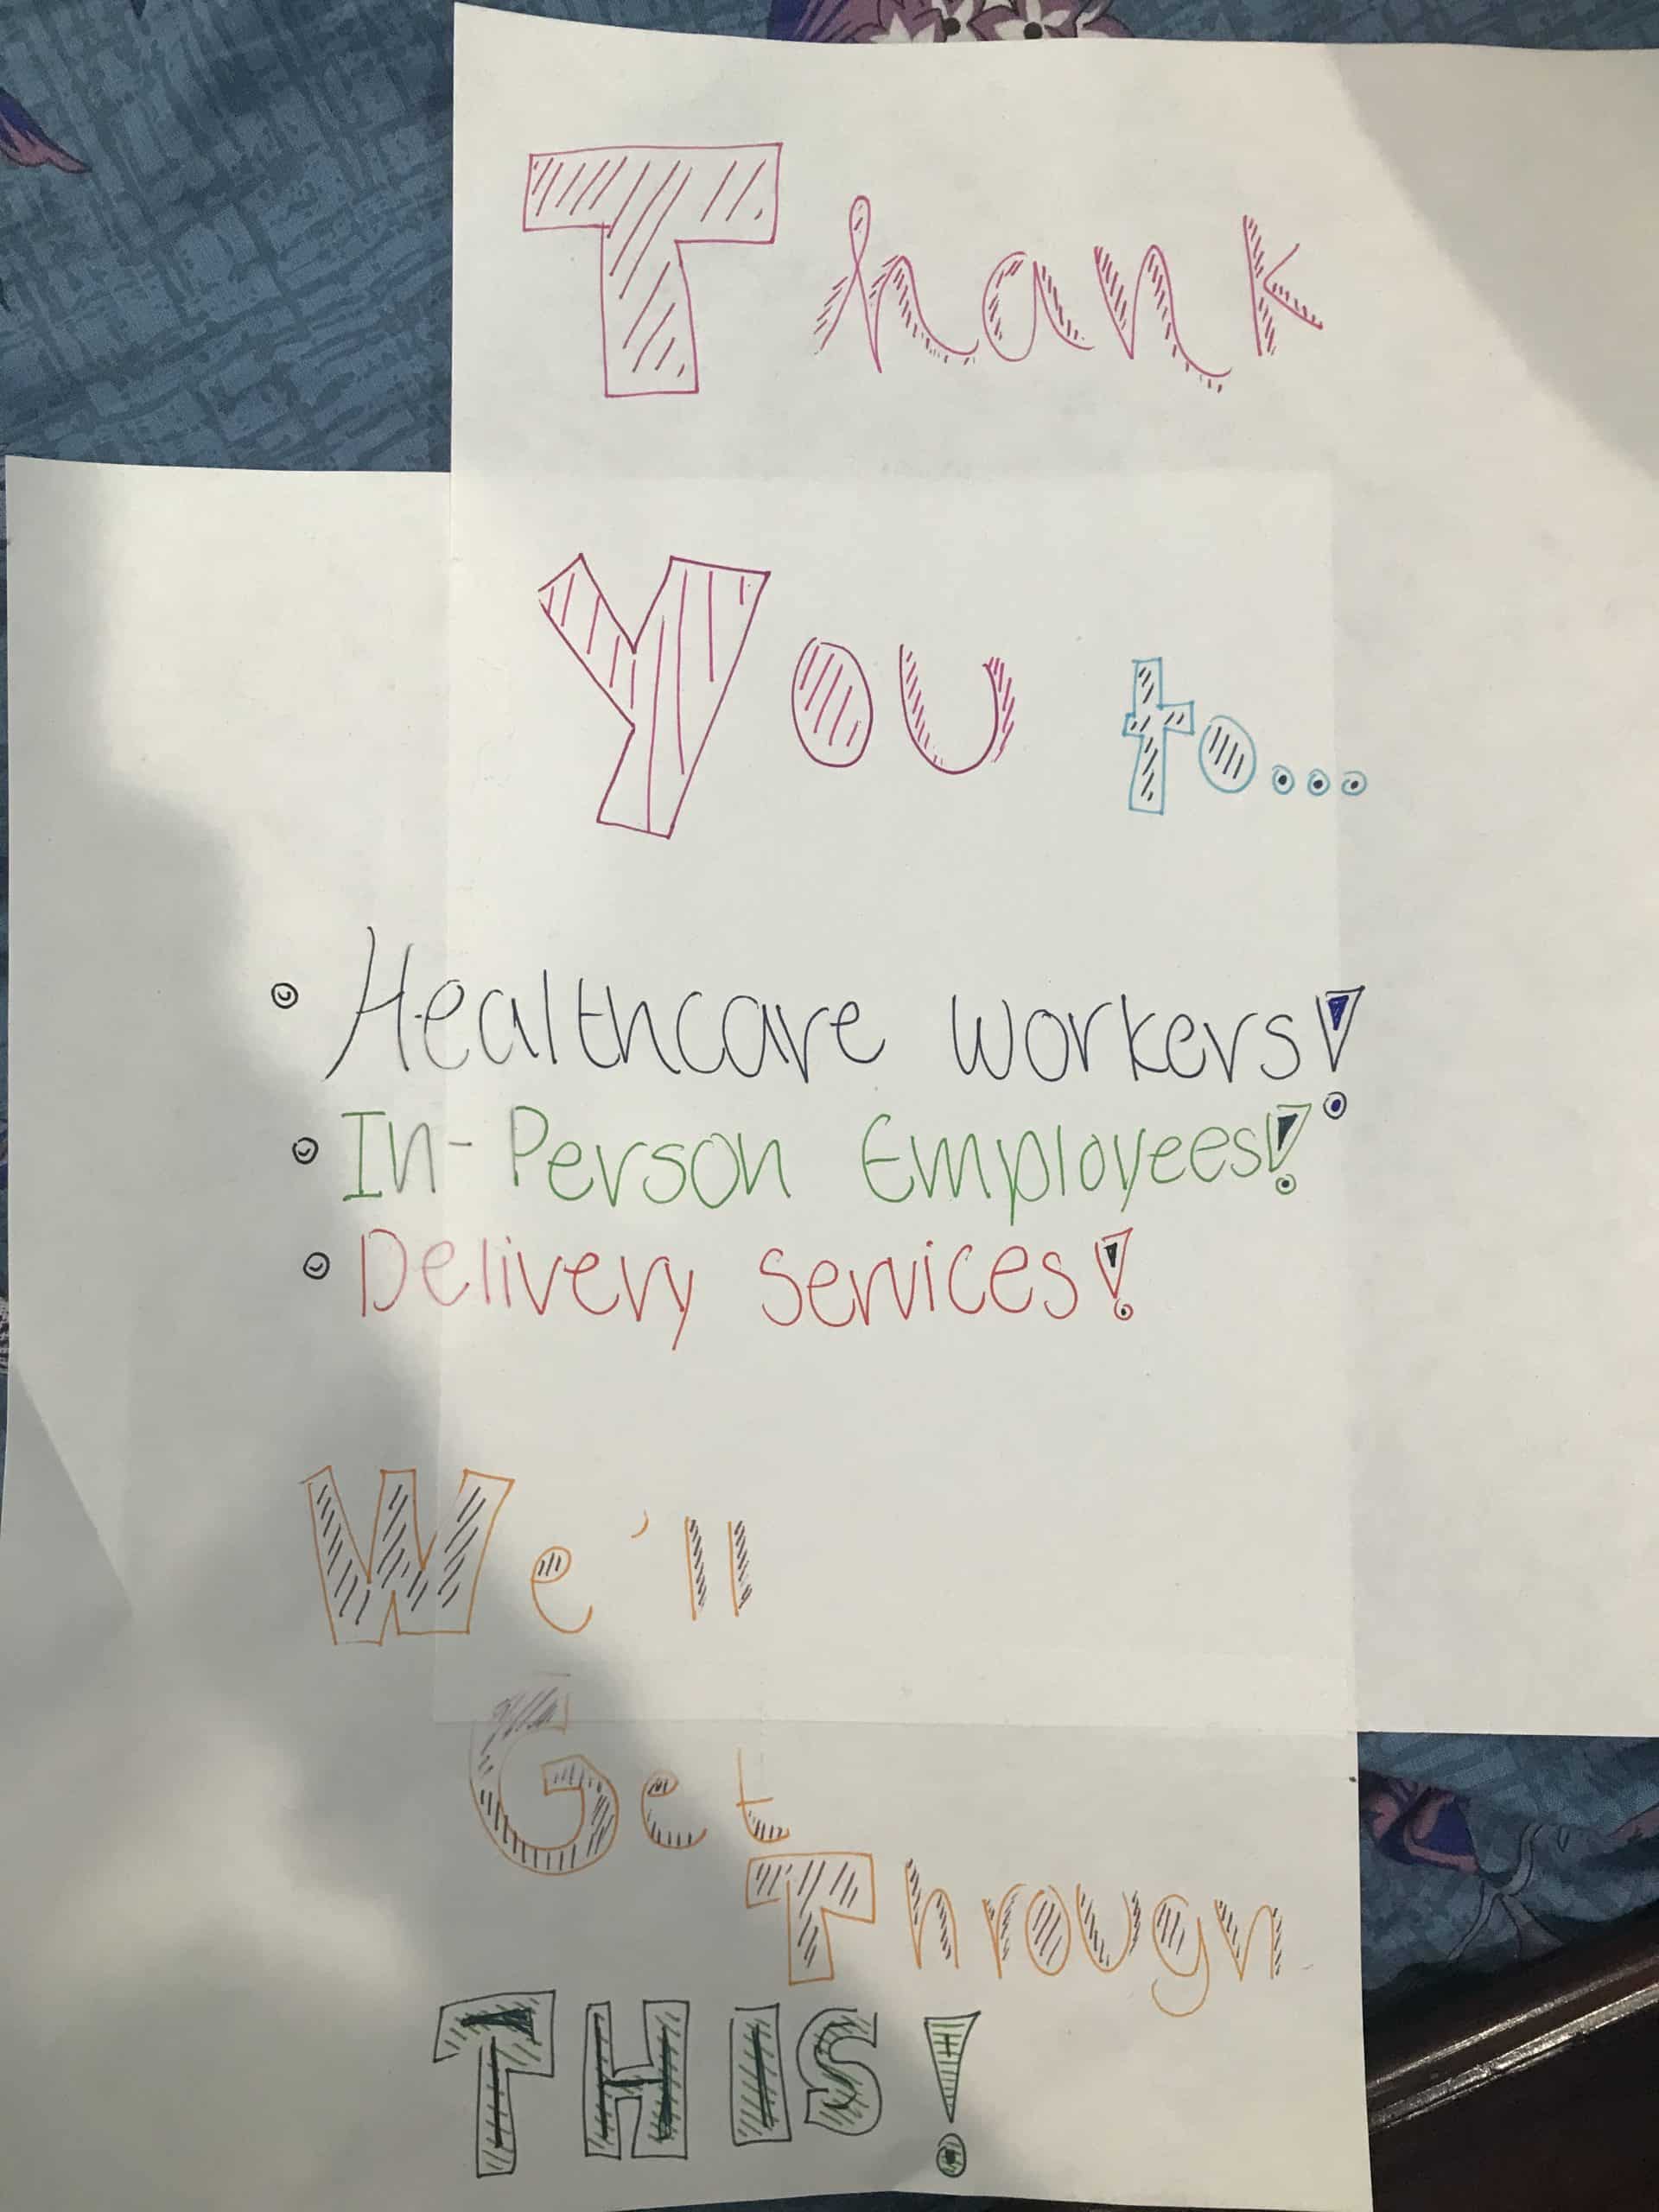 Thank
You to...
• Healthcare workers!
• In-Person Employees!
• Delivery services!
We'll
Get
Through
THIS!